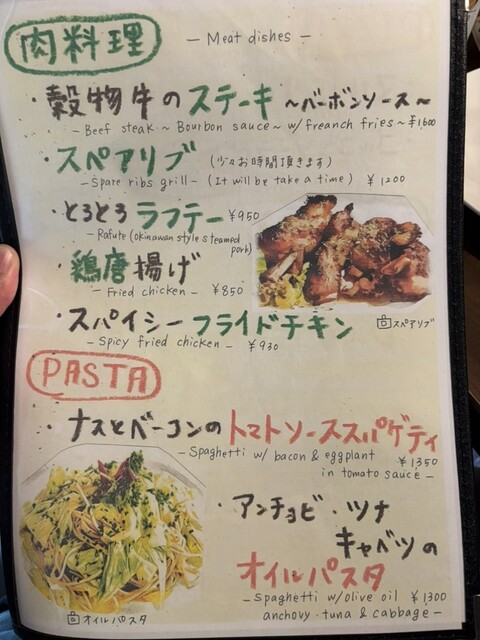 肉料理 — Meat dishes —
・穀物牛のステーキ ~バーボンソース~
— Beef steak ~ Bourbon sauce ~ w/ freanch fries ~ ¥1,600
・スペアリブ (少々お時間頂きます)
— Spare ribs grill — (It will be take a time) ¥1200
・とろとろラフテー ¥950
— Rafute (okinawan style steamed
pork)
・鶏唐揚げ
— Fried chicken — ¥850
スペアリブ
・スパイシーフライドチキン
— Spicy fried chicken — ¥930
PASTA
・ナスとベーコンのトマトソーススパゲティ
— Spaghetti w/ bacon & eggplant ¥1350
in tomato sauce —
・アンチョビ・ツナ
キャベツの
オイルパスタ
— Spaghetti w/ olive oil ¥1300
anchovy・tuna & cabbage —
オイルパスタ